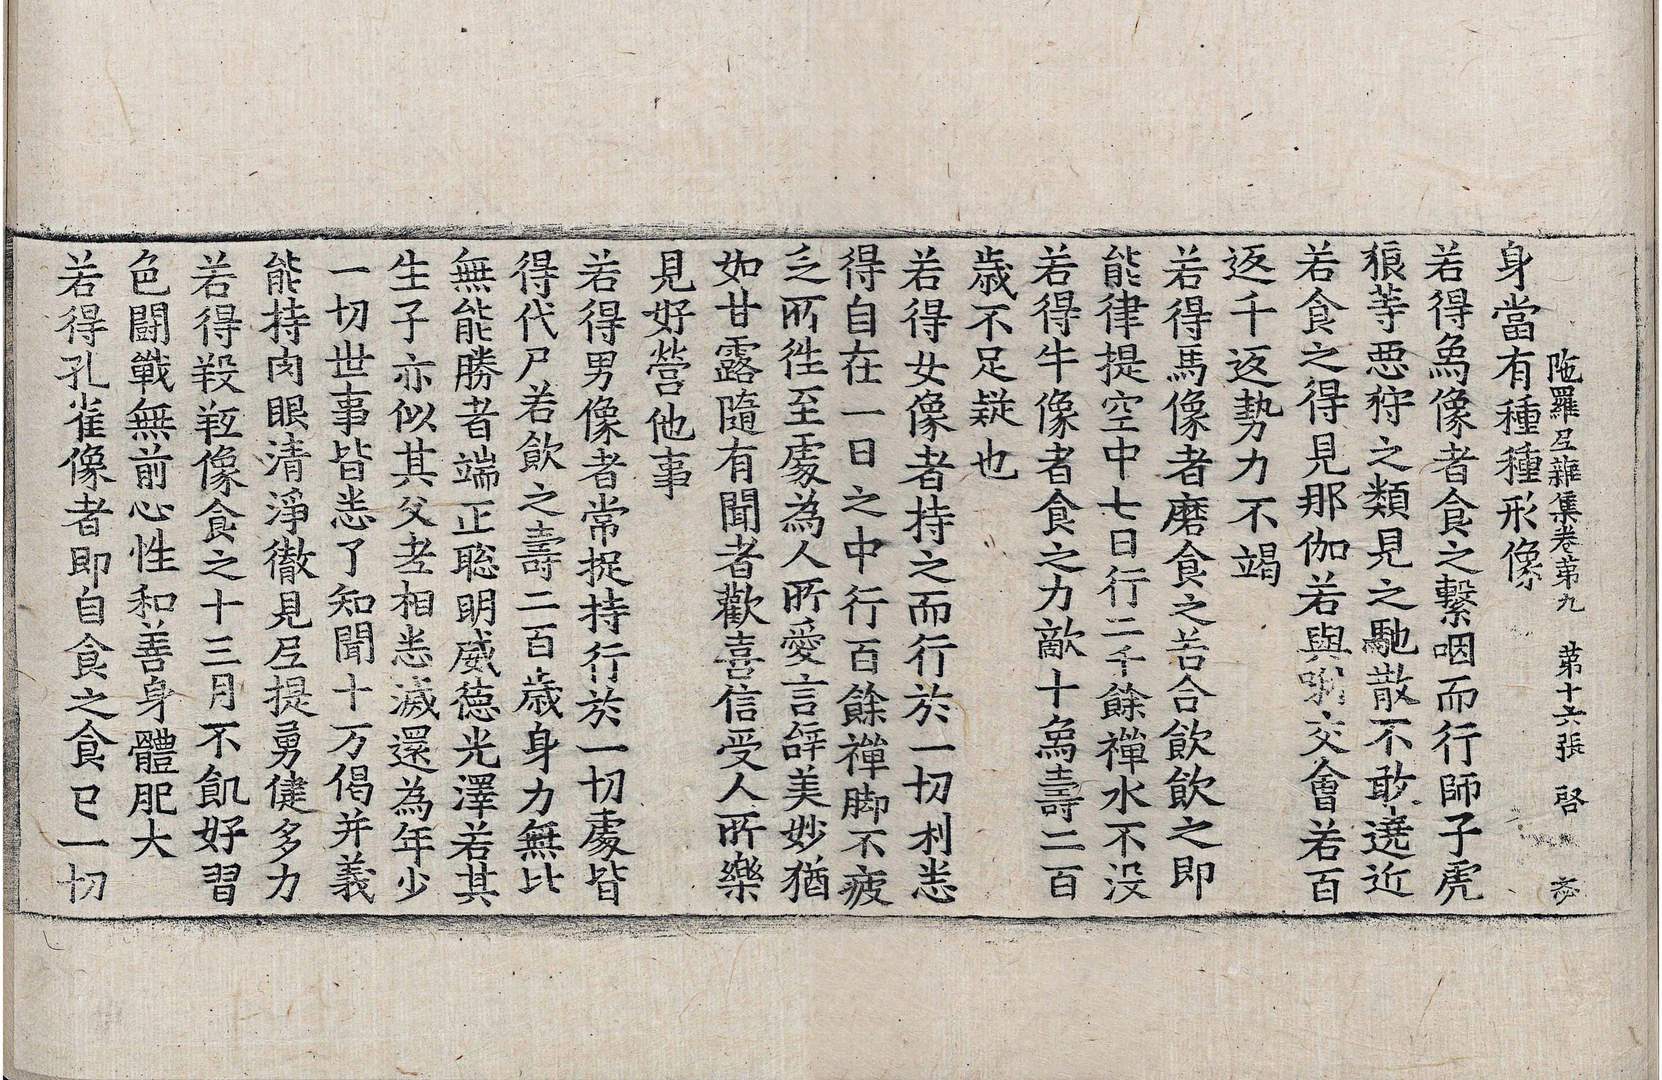 陁羅尼雜集卷第九　第十六張　啓
身當有種種形像
若得象像者食之繫咽而行師子虎
狼等惡狩之類見之馳散不敢遶近
若食之得見那伽若與交會若百
返千返勢力不竭
若得馬像者磨食之若合飲飲之即
能律提空中七日行二千餘禪水不没
若得牛像者食之力敵十象壽二百
歲不足疑也
若得女像者持之而行於一切利悉
得自在一日之中行百餘禪脚不疲
乏所徃至處為人所愛言辝美妙猶
如甘露隨有聞者歡喜信受人所樂
見好營他事
若得男像者常捉持行於一切處皆
得代尸若飲之壽二百歲身力無比
無能勝者端正聡明威德光澤若其
生子亦似其父老相悉滅還為年少
一切世事皆悉了知聞十万偈并義
能持肉眼清淨徹見尼提勇健多力
若得羖羝像食之十三月不飢好習
色闘戰無前心性和善身體肥大
若得孔雀像者即自食之食已一切